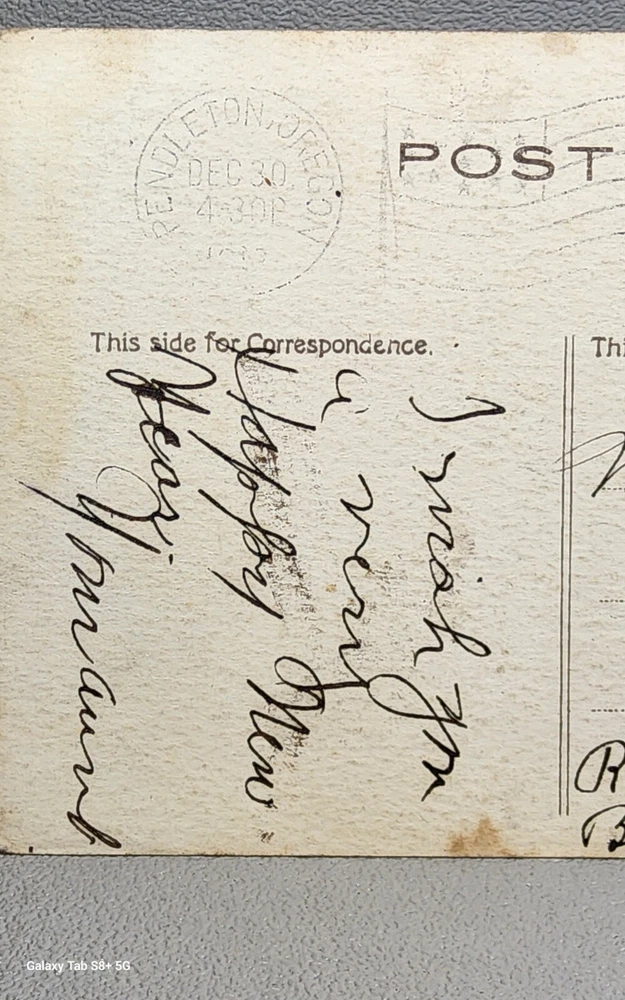 PENDLETON, OREGON
DEC 30
4-30P
POST
This side for Correspondence.
Thi
I wish you
a very
Happy New
Year.
Your aunt
R
B
Galaxy Tab S8+ 5G